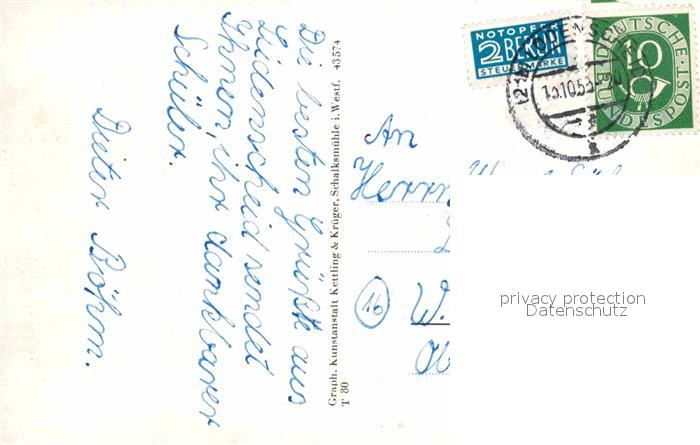 Die besten Grüße aus
Lüdenscheid sendet
Ihnen, ihr dankbarer
Schüler.
Dieter Böhm.
Graph. Kunstanstalt Kettling & Krüger, Schalksmühle i. Westf. 43574
T 80
NOTOPFER
2 BERLIN
STEUERMARKE
DEUTSCHE
10
BUNDESPOST
An
Herrn
16
W.
privacy protection
Datenschutz